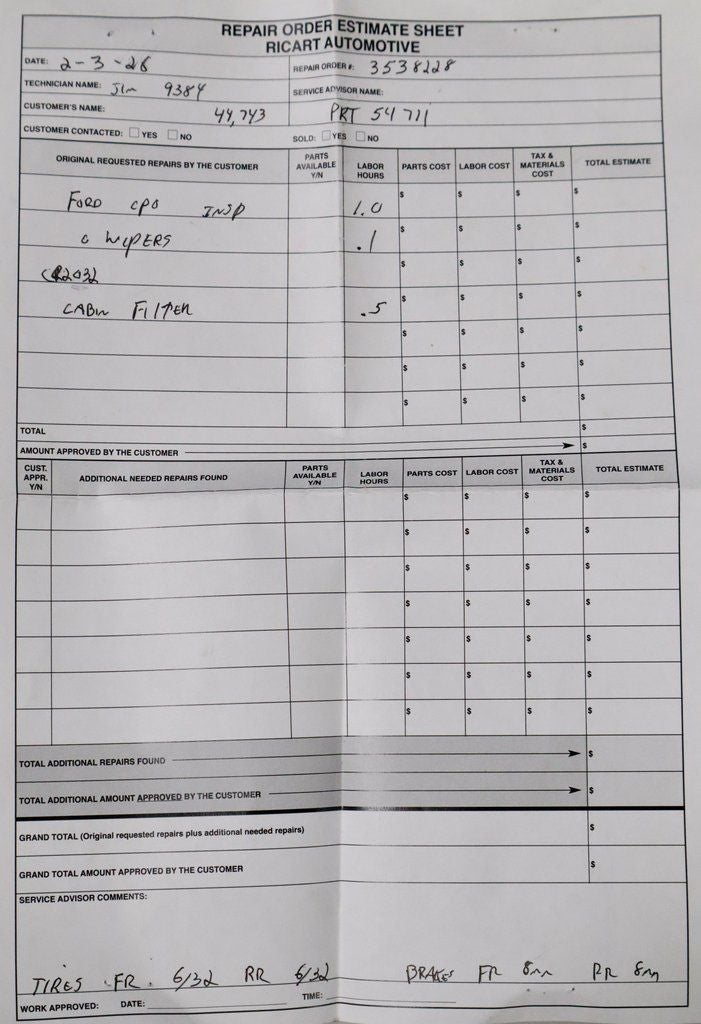 REPAIR ORDER ESTIMATE SHEET
RICART AUTOMOTIVE
DATE: 2-3-26 REPAIR ORDER #: 3538228
TECHNICIAN NAME: Jim 9384 SERVICE ADVISOR NAME:
CUSTOMER'S NAME: 44,743 PRT 54711
CUSTOMER CONTACTED: YES NO SOLD: YES NO
ORIGINAL REQUESTED REPAIRS BY THE CUSTOMER PARTS AVAILABLE Y/N LABOR HOURS PARTS COST LABOR COST TAX & MATERIALS COST TOTAL ESTIMATE
FORD CPO INSP 1.0 $ $ $ $
O WIPERS .1 $ $ $ $
CR2032 $ $ $ $
CABIN FILTER .5 $ $ $ $
$ $ $ $
$ $ $ $
$ $ $ $
TOTAL $
AMOUNT APPROVED BY THE CUSTOMER $
CUST. APPR. Y/N ADDITIONAL NEEDED REPAIRS FOUND PARTS AVAILABLE Y/N LABOR HOURS PARTS COST LABOR COST TAX & MATERIALS COST TOTAL ESTIMATE
$ $ $ $
$ $ $ $
$ $ $ $
$ $ $ $
$ $ $ $
$ $ $ $
$ $ $ $
TOTAL ADDITIONAL REPAIRS FOUND $
TOTAL ADDITIONAL AMOUNT APPROVED BY THE CUSTOMER $
GRAND TOTAL (Original requested repairs plus additional needed repairs) $
GRAND TOTAL AMOUNT APPROVED BY THE CUSTOMER $
SERVICE ADVISOR COMMENTS:
TIRES FR 6/32 RR 6/32 BRAKES FR 8mm RR 8mm
WORK APPROVED: DATE: TIME: